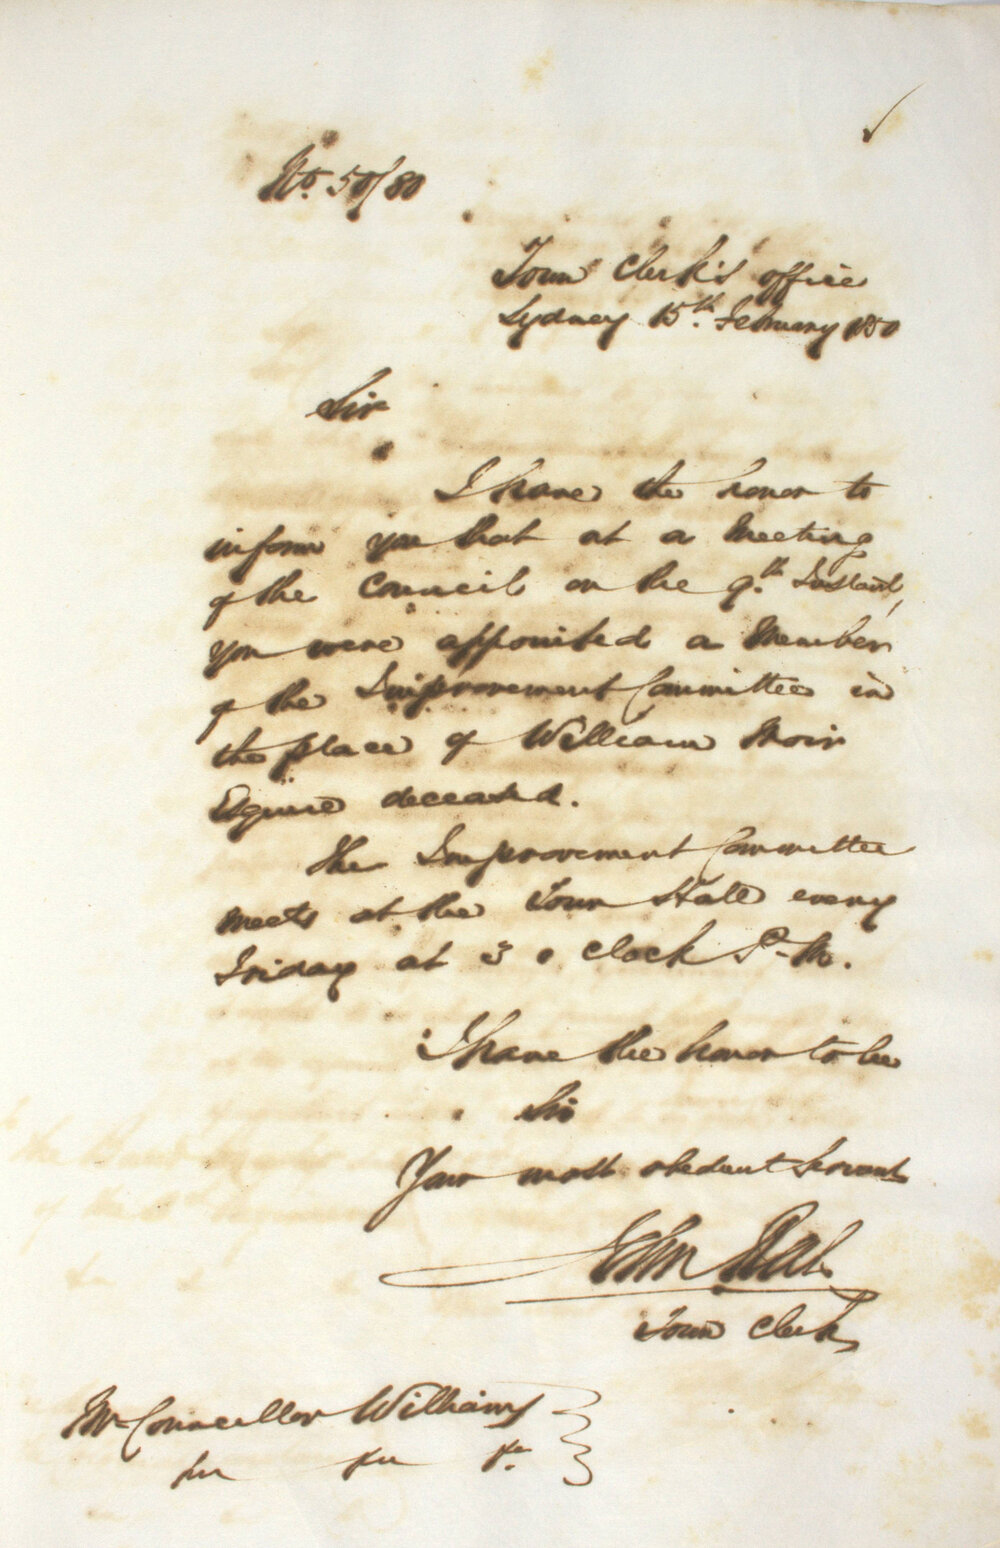 No. 50/80
Town Clerk's office
Sydney 15th February 1850
Sir
I have the honor to
inform you that at a Meeting
of the Council on the 9th Instant,
you were appointed a Member
of the Improvement Committee in
the place of William Moir
Esquire deceased.
The Improvement Committee
meets at the Town Hall every
Friday at 3 o Clock P.M.
I have the honor to be
Sir
Your most obedient Servant
John
Town Clerk
Mr Councillor Williams